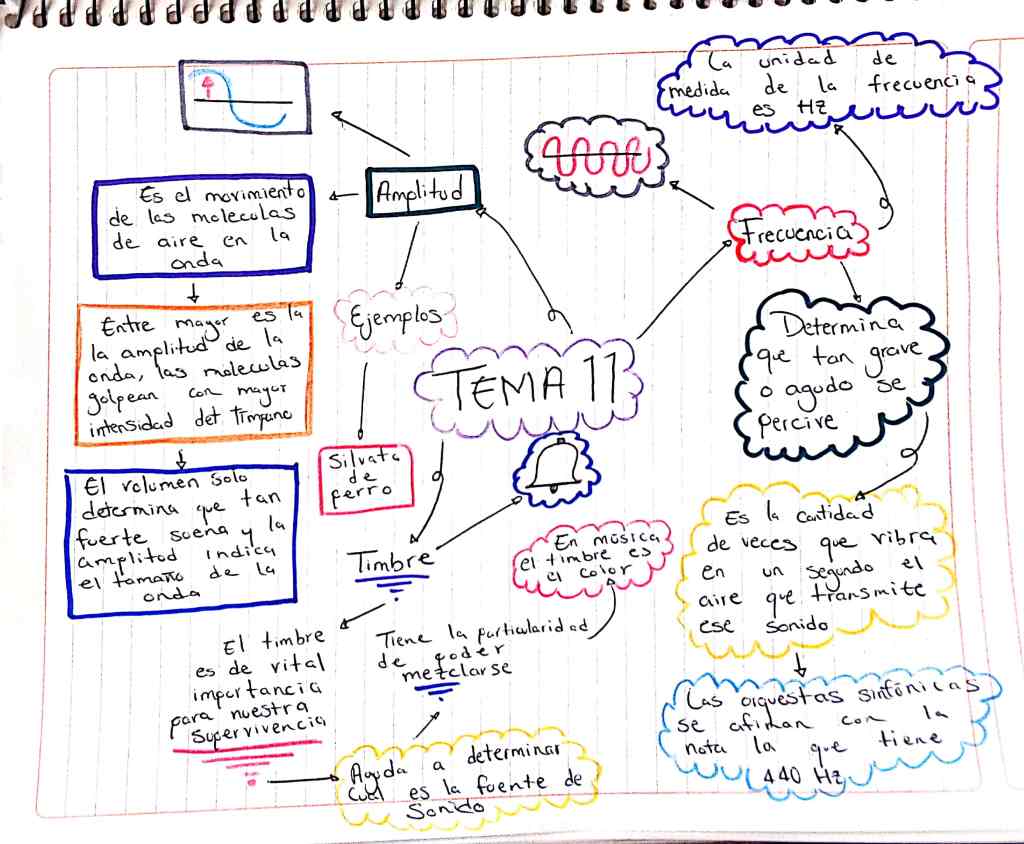 La unidad de
medida de la frecuencia
es HZ
Amplitud
Es el movimiento
de las moleculas
de aire en la
onda
Frecuencia
Entre mayor es la
la amplitud de la
onda, las moleculas
golpean con mayor
intensidad det Tímpano
Ejemplos
Determina
que tan grave
o agudo se
percive
TEMA 11
Silvata
de
perro
El volumen solo
determina que tan
fuerte suena y la
amplitud indica
el tamaño de la
onda
Timbre
En música
el timbre es
el color
Es la cantidad
de veces que vibra
en un segundo el
aire que transmite
ese sonido
El timbre
es de vital
importancia
para nuestra
supervivencia
Tiene la particularidad
de poder
mezclarse
Ayuda a determinar
cual es la fuente de
Sonido
Las orquestas sinfónicas
se afinan con la
nota la que tiene
440 Hz